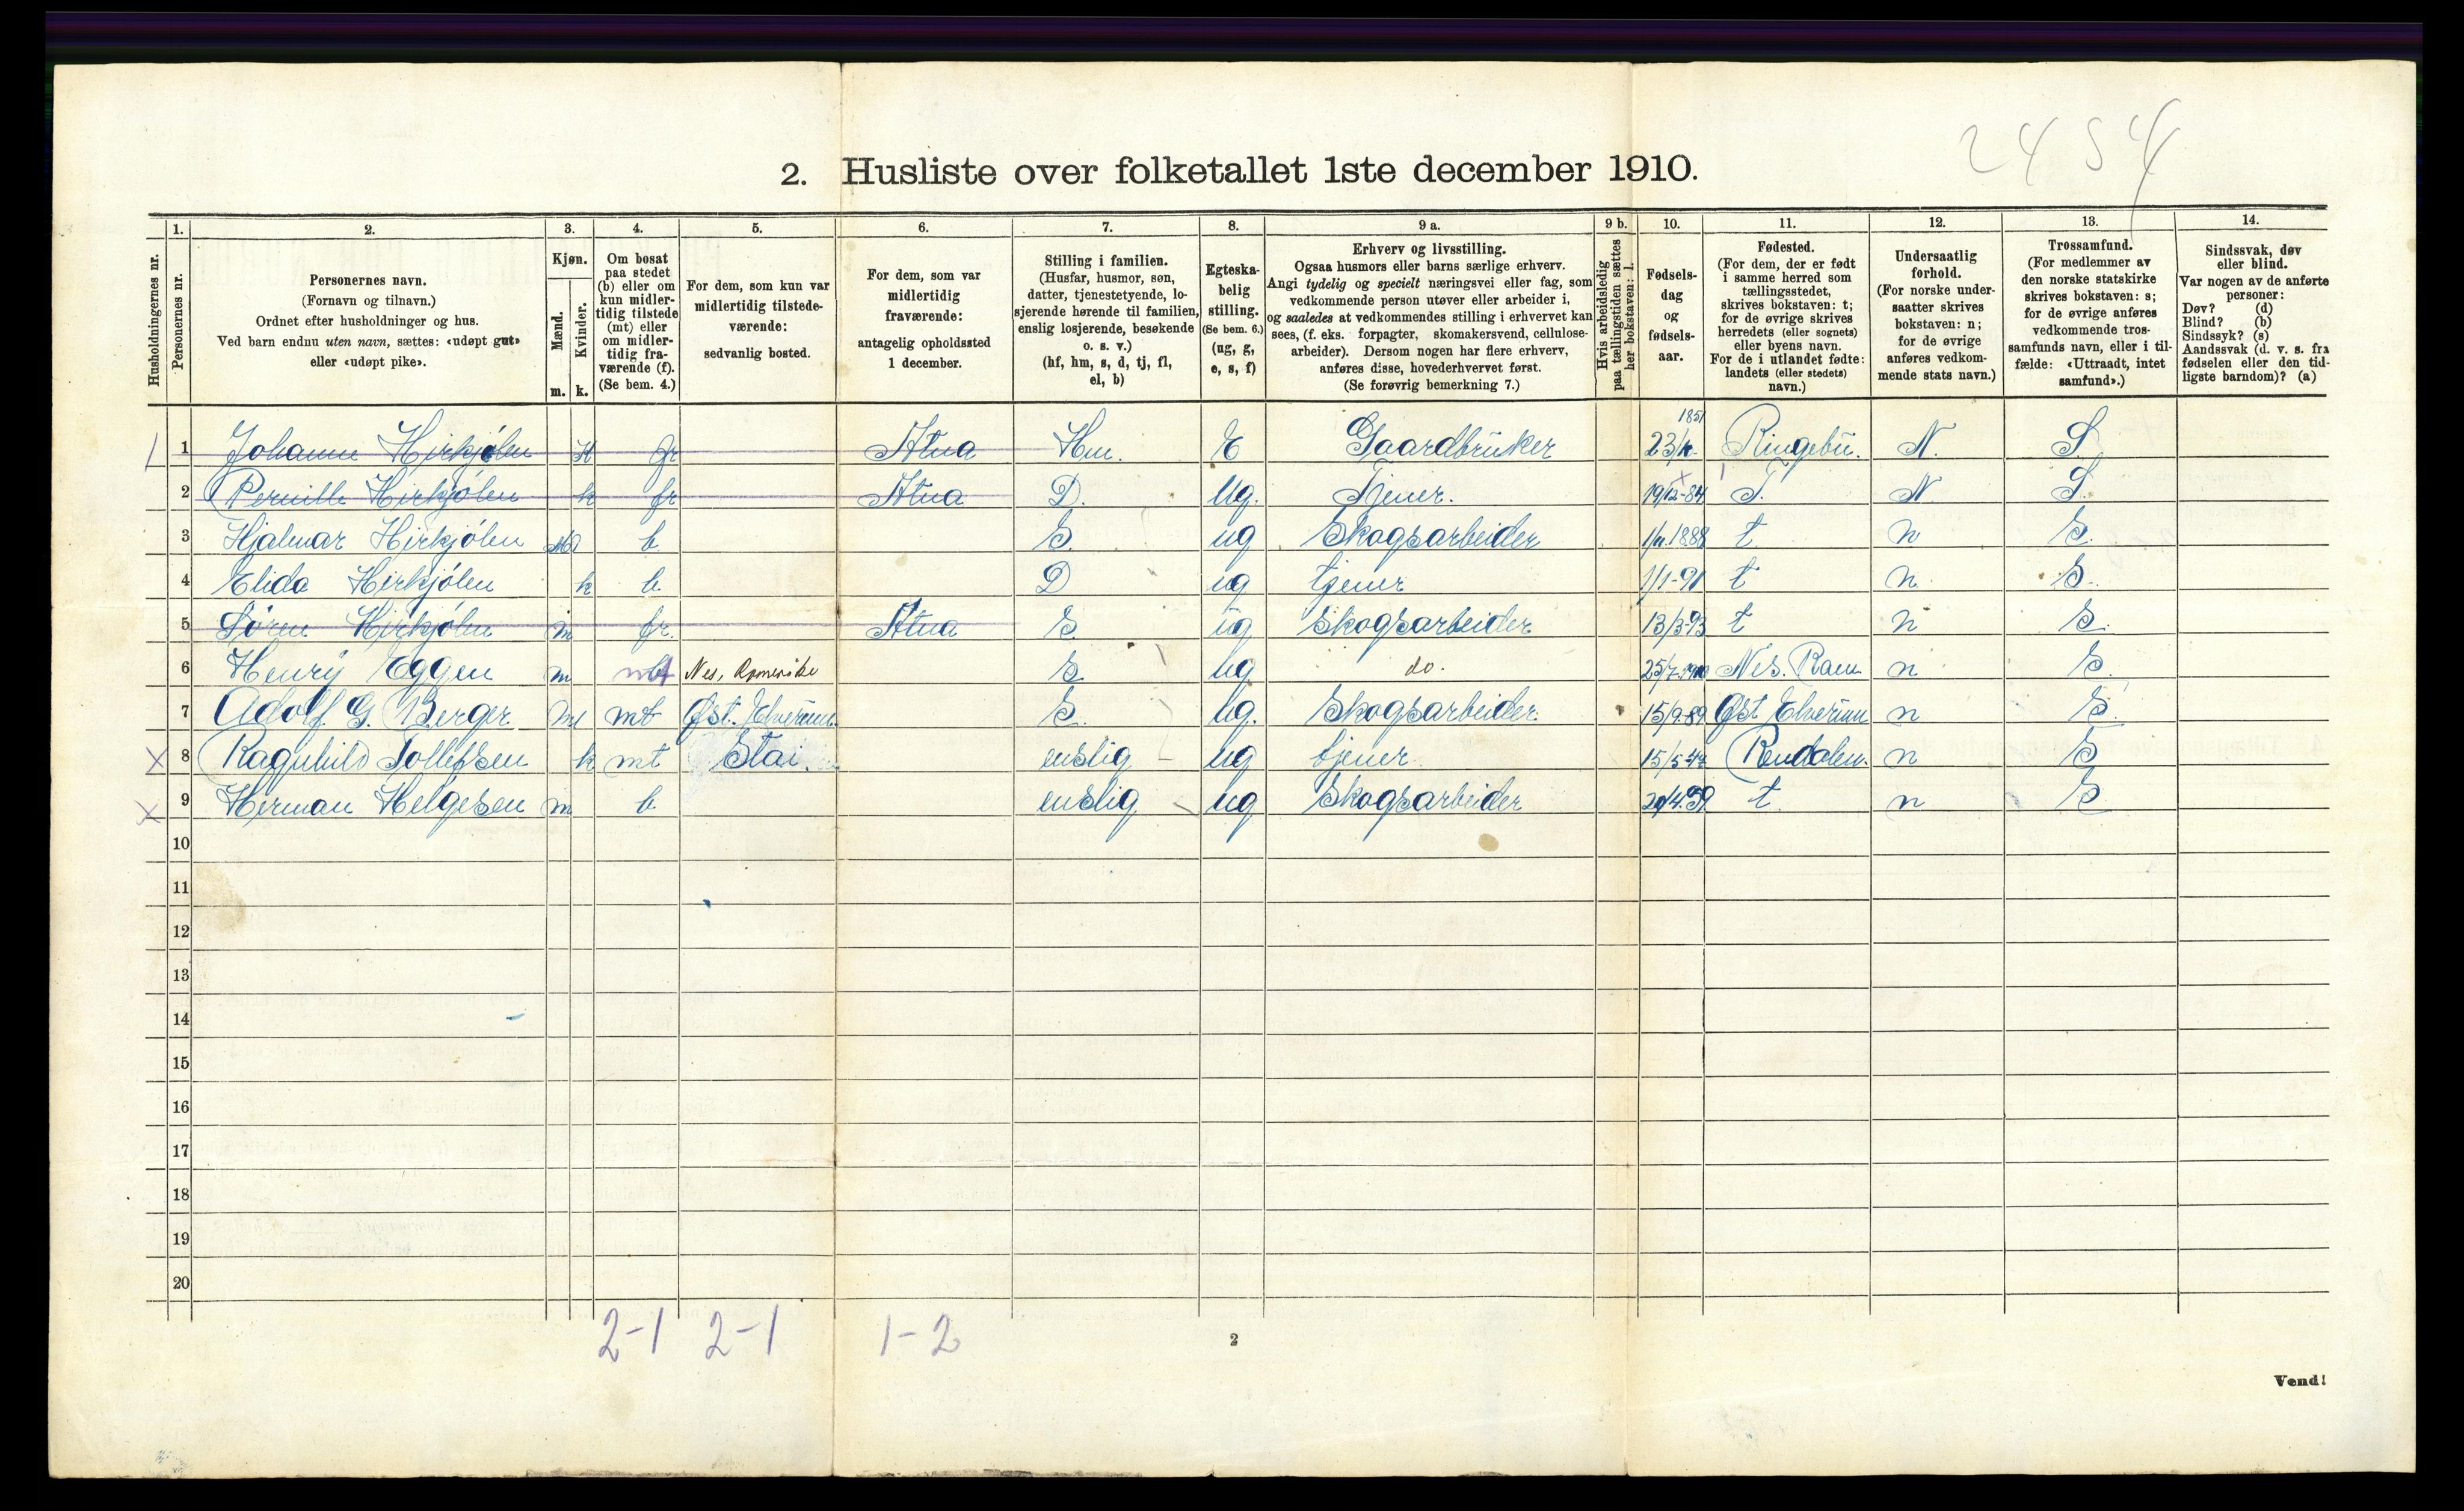 2454
2. Husliste over folketallet 1ste december 1910.
Husholdningernes nr.
1.
Personernes nr.
2.
Personernes navn.
(Fornavn og tilnavn.)
Ordnet efter husholdninger og hus.
Ved barn endnu uten navn, sættes: «udøpt gut»
eller «udøpt pike».
3.
Kjøn.
Mænd.
Kvinder.
m. k.
4.
Om bosat
paa stedet
(b) eller om
kun midler-
tidig tilstede
(mt) eller
om midler-
tidig fra-
værende (f).
(Se bem. 4.)
5.
For dem, som kun var
midlertidig tilstede-
værende:
sedvanlig bosted.
6.
For dem, som var
midlertidig
fraværende:
antagelig opholdssted
1 december.
7.
Stilling i familien.
(Husfar, husmor, søn,
datter, tjenestetyende, lo-
sjerende hørende til familien,
enslig losjerende, besøkende
o. s. v.)
(hf, hm, s, d, tj, fl,
el, b)
8.
Egteska-
belig
stilling.
(Se bem. 6.)
(ug, g,
e, s, f)
9 a.
Erhverv og livsstilling.
Ogsaa husmors eller barns særlige erhverv.
Angi tydelig og specielt næringsvei eller fag, som
vedkommende person utøver eller arbeider i,
og saaledes at vedkommendes stilling i erhvervet kan
sees, (f. eks. forpagter, skomakersvend, cellulose-
arbeider). Dersom nogen har flere erhverv,
anføres disse, hovederhvervet først.
(Se forøvrig bemerkning 7.)
9 b.
Hvis arbeidsledig
paa tællingstiden sættes
her bokstaven: l.
10.
Fødsels-
dag
og
fødsels-
aar.
11.
Fødested.
(For dem, der er født
i samme herred som
tællingsstedet,
skrives bokstaven: t;
for de øvrige skrives
herredets (eller sognets)
eller byens navn.
For de i utlandet fødte:
landets (eller stedets)
navn.)
12.
Undersaatlig
forhold.
(For norske under-
saatter skrives
bokstaven: n;
for de øvrige
anføres vedkom-
mende stats navn.)
13.
Trossamfund.
(For medlemmer av
den norske statskirke
skrives bokstaven: s;
for de øvrige anføres
vedkommende tros-
samfunds navn, eller i til-
fælde: «Uttraadt, intet
samfund».)
14.
Sindssvak, døv
eller blind.
Var nogen av de anførte
personer:
Døv? (d)
Blind? (b)
Sindssyk? (s)
Aandssvak (d. v. s. fra
fødselen eller den tid-
ligste barndom)? (a)
1 1 Johanne Hirkjølen K fr Atna Hm. E Gaardbruker 1851 Ringebu. N. S
2 Pernille Hirkjølen k fr Atna D. Ug. Tjener. 19/12-84 T. N S.
3 Hjalmar Hirkjølen M b S. ug Skogsarbeider 1/11.1888 t n S.
4 Elida Hirkjølen k b D ug tjener 1/1-91 t n. S.
5 Søren Hirkjølen m fr. Atna S. ug Skogsarbeider 13/3-93 t n S.
6 Henry Eggen m mt Nes, Romerike S ug do. Nes. Rom n S.
7 Adolf G. Berger M mt Øst. Elverum. S. ug. Skogsarbeider. 15/9-89 Øst Elverum n S.
X 8 Ragnhild Tollefsen k mt Stai. enslig ug tjener. Rendalen. n S
X 9 Herman Helgesen m b. enslig ug Skogsarbeider t. n S
10
11
12
13
14
15
16
17
18
19
20
2-1 2-1 1-2
2
Vend!